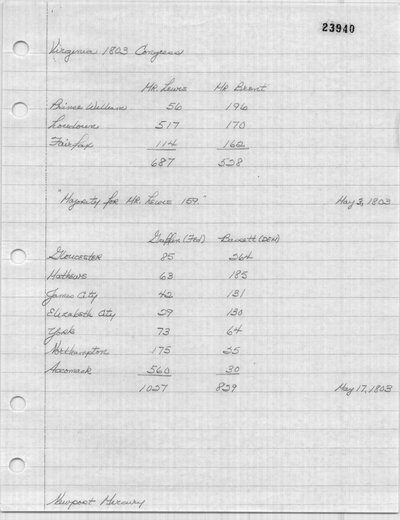 23940
Virginia 1803 Congress
Mr. Lewis Mr Brent
Prince William 56 196
Loudoun 517 170
Fairfax 114 162
687 528
"Majority for Mr. Lewis 159." May 3, 1803
Griffin (Fed) Bassett (Dem)
Gloucester 85 264
Mathews 63 185
James City 42 131
Elizabeth City 29 130
York 73 64
Northampton 175 25
Accomack 560 30
1027 829 May 17, 1803
Newport Mercury